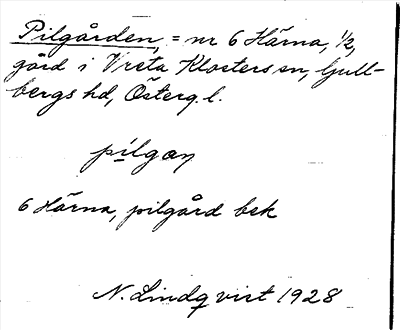 Pilgården, = nr 6 Härna, 1/2,
gård i Vreta Klosters sn, Gull-
bergs hd, Österg. l.
pilgan
6 Härna, pilgård bek
N. Lindqvist 1928